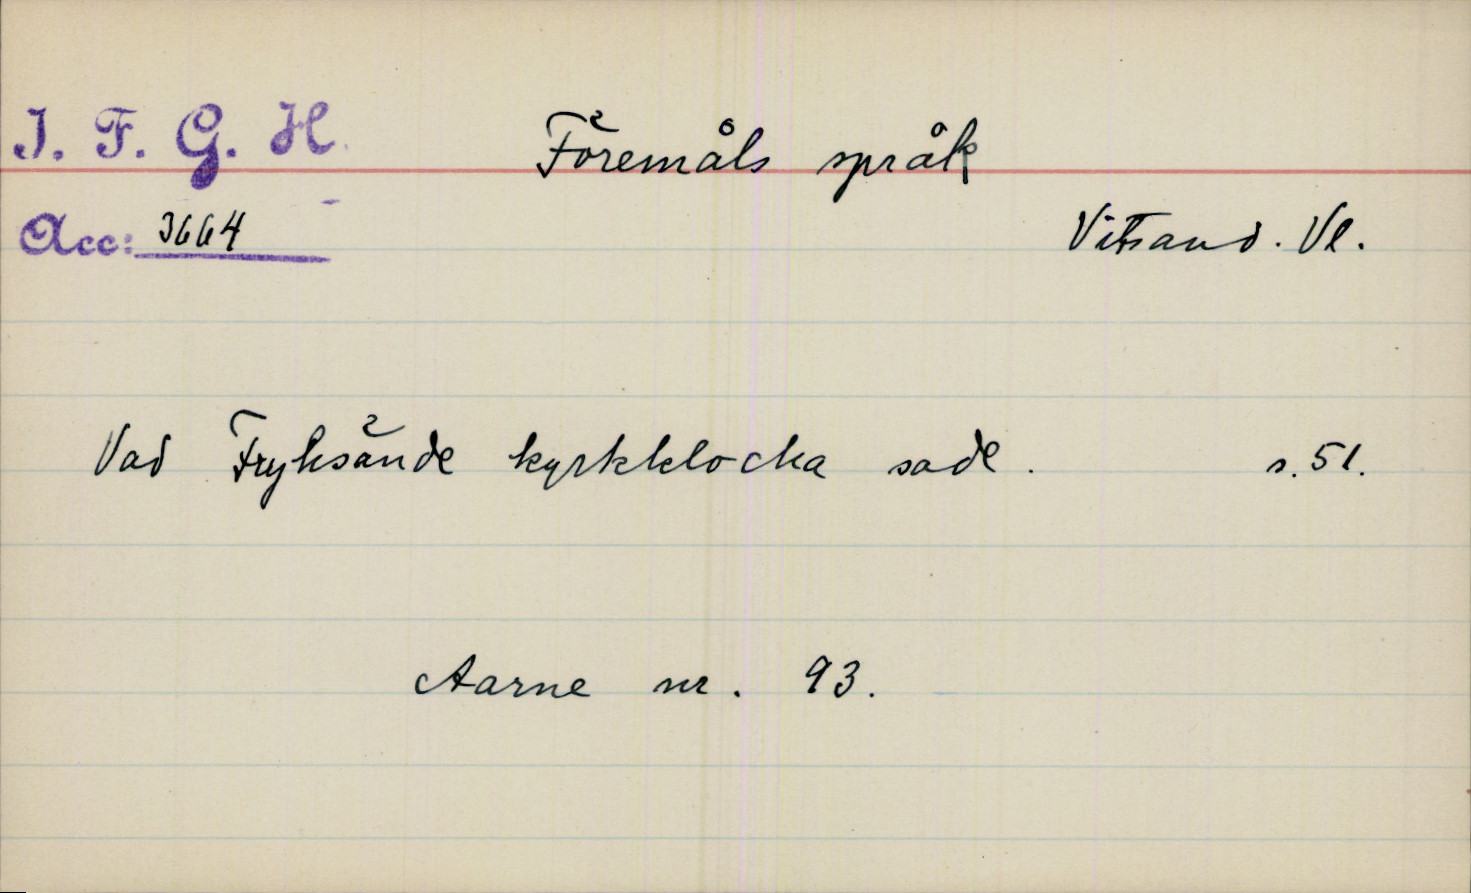 I. F. G. H.
Föremåls språk
Acc: 3664
Vitsand. Vl.
Vad Fryksände kyrkklocka sade. s. 51.
Aarne nr. 93.